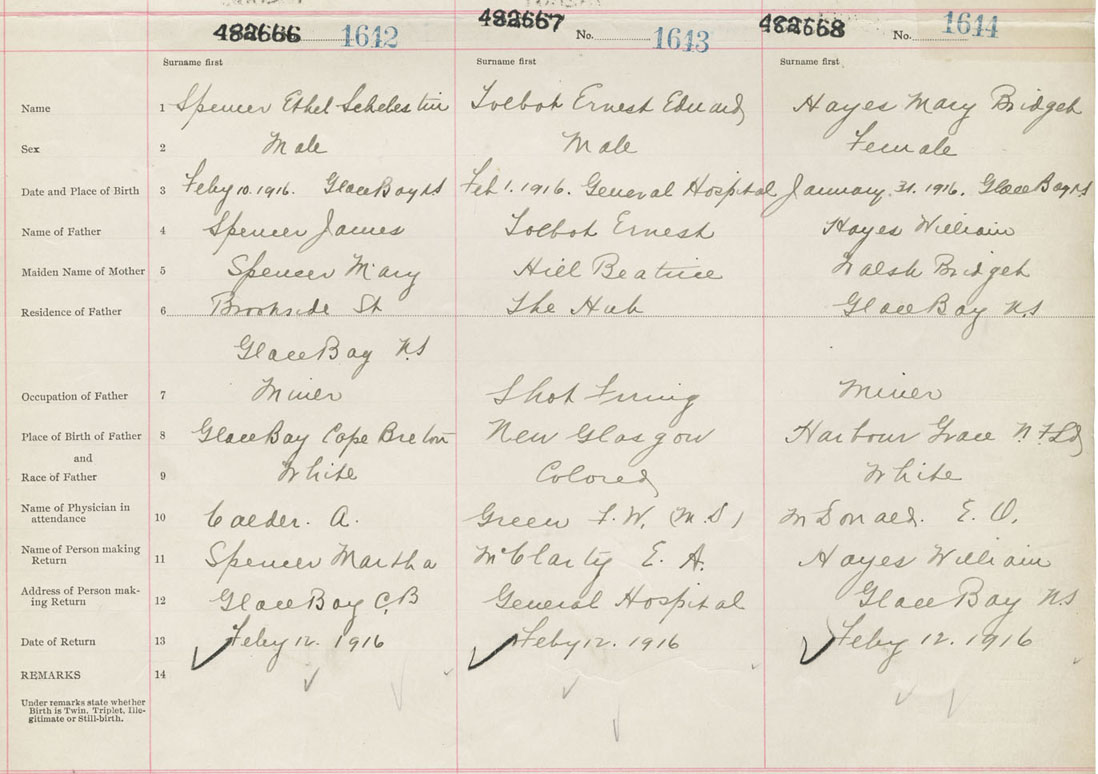 482666 1642 482667 No. 1643 482668 No. 1644
Surname first Surname first Surname first
Name 1 Spencer Ethel Scheles tin Tolbot Ernest Edward Hayes Mary Bridget
Sex 2 Male Male Female
Date and Place of Birth 3 Feby 10. 1916. Glace Bay NS Feb 1. 1916. General Hospital January. 31. 1916. Glace Bay NS
Name of Father 4 Spencer James Tolbot Ernest Hayes William
Maiden Name of Mother 5 Spencer Mary Hill Beatrice Walsh Bridget
Residence of Father 6 Brookside St The Hub Glace Bay N.S
Glace Bay N.S
Occupation of Father 7 Miner Shot Firing Miner
Place of Birth of Father 8 Glace Bay Cape Breton New Glasgow Harbour Grace N.F.Ld
and
Race of Father 9 White Colored White
Name of Physician in
attendance 10 Calder. A. Green F. W. (M.D) McDonald. E. O.
Name of Person making
Return 11 Spencer Martha McClarty E. A. Hayes William
Address of Person mak-
ing Return 12 Glace Bay C.B General Hospital Glace Bay N.S
Date of Return 13 Feby 12. 1916 Feby 12. 1916 Feby 12. 1916
REMARKS 14
Under remarks state whether
Birth is Twin, Triplet, Ille-
gitimate or Still-birth.